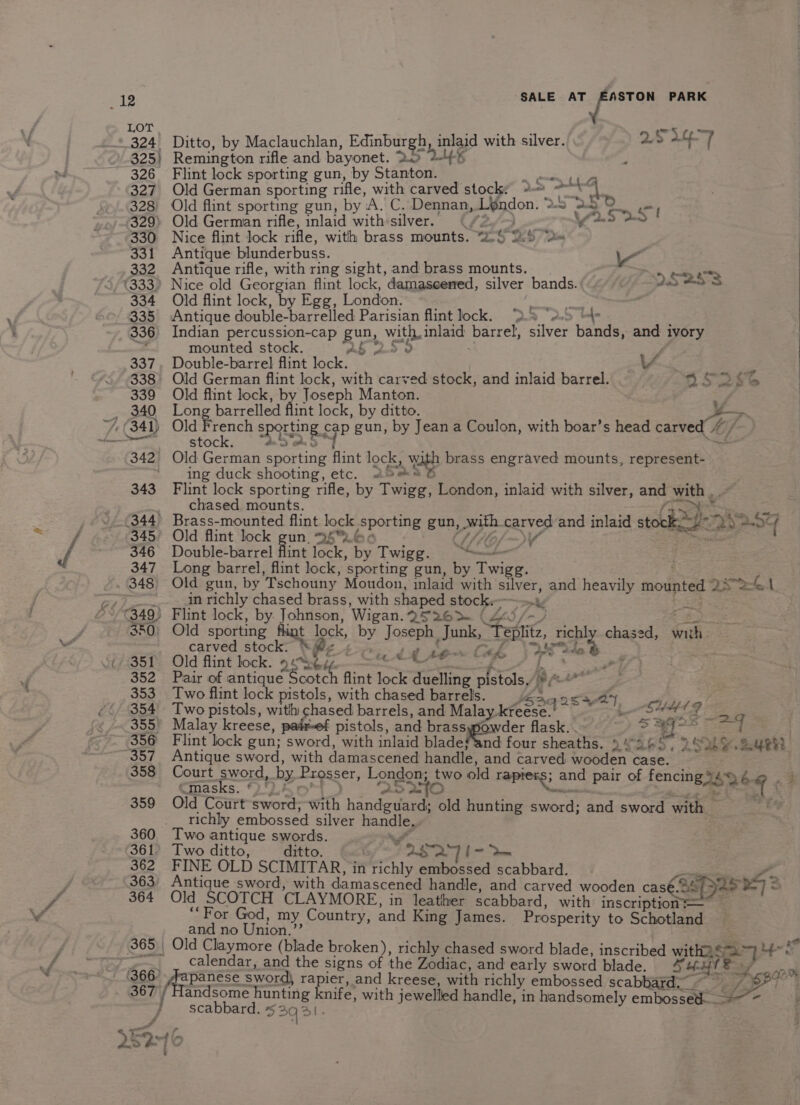 12 SALE AT EASTON PARK
LOT
324 Ditto, by Maclauchlan, Edinburgh, inlaid with silver. 25247
325 Remington rifle and bayonet. 25246
326 Flint lock sporting gun, by Stanton.
327 Old German sporting rifle, with carved stock.
328 Old flint sporting gun, by A. C. Dennan, London. 25250
329 Old German rifle, inlaid with silver. 25251
330 Nice flint lock rifle, with brass mounts. 25252
331 Antique blunderbuss.
332 Antique rifle, with ring sight, and brass mounts.
333 Nice old Georgian flint lock, damasceened, silver bands. 25253
334 Old flint lock, by Egg, London.
335 Antique double-barrelled Parisian flint lock. 25254
336 Indian percussion-cap gun, with inlaid barrel, silver bands, and ivory
mounted stock. 25255
337 Double-barrel flint lock.
338 Old German flint lock, with carved stock, and inlaid barrel. 25256
339 Old flint lock, by Joseph Manton.
340 Long barrelled flint lock, by ditto.
341 Old French sporting cap gun, by Jean a Coulon, with boar's head carved
stock.
342 Old German sporting flint lock, with brass engraved mounts, represent-
ing duck shooting, etc.
343 Flint lock sporting rifle, by Twigg, London, inlaid with silver, and with
chased mounts.
344 Brass-mounted flint lock sporting gun, with carved and inlaid stock
345 Old flint lock gun. 25260
346 Double-barrel flint lock, by Twigg.
347 Long barrel, flint lock, sporting gun, by Twigg.
348 Old gun, by Tschouny Moudon, inlaid with silver, and heavily mounted 25261
in richly chased brass, with shaped stock.
349 Flint lock, by Johnson, Wigan. 25262
350 Old sporting flint lock, by Joseph Junk, Teplitz, richly chased, with
carved stock.
351 Old flint lock.
352 Pair of antique Scotch flint lock duelling pistols.
353 Two flint lock pistols, with chased barrels.
354 Two pistols, with chased barrels, and Malay kreese.
355 Malay kreese, pair of pistols, and brass powder flask.
356 Flint lock gun; sword, with inlaid blade; and four sheaths.
357 Antique sword, with damascened handle, and carved wooden case.
358 Court sword, by Prosser, London; two old rapiers; and pair of fencing
masks.
359 Old Court sword, with handguard; old hunting sword; and sword with
richly embossed silver handle.
360 Two antique swords.
361 Two ditto, ditto.
362 FINE OLD SCIMITAR, in richly embossed scabbard.
363 Antique sword, with damascened handle, and carved wooden case.
364 Old SCOTCH CLAYMORE, in leather scabbard, with inscription:—
"For God, my Country, and King James. Prosperity to Schotland
and no Union."
365 Old Claymore (blade broken), richly chased sword blade, inscribed with
calendar, and the signs of the Zodiac, and early sword blade.
366 Japanese sword, rapier, and kreese, with richly embossed scabbard.
367 Handsome hunting knife, with jewelled handle, in handsomely embossed
scabbard.